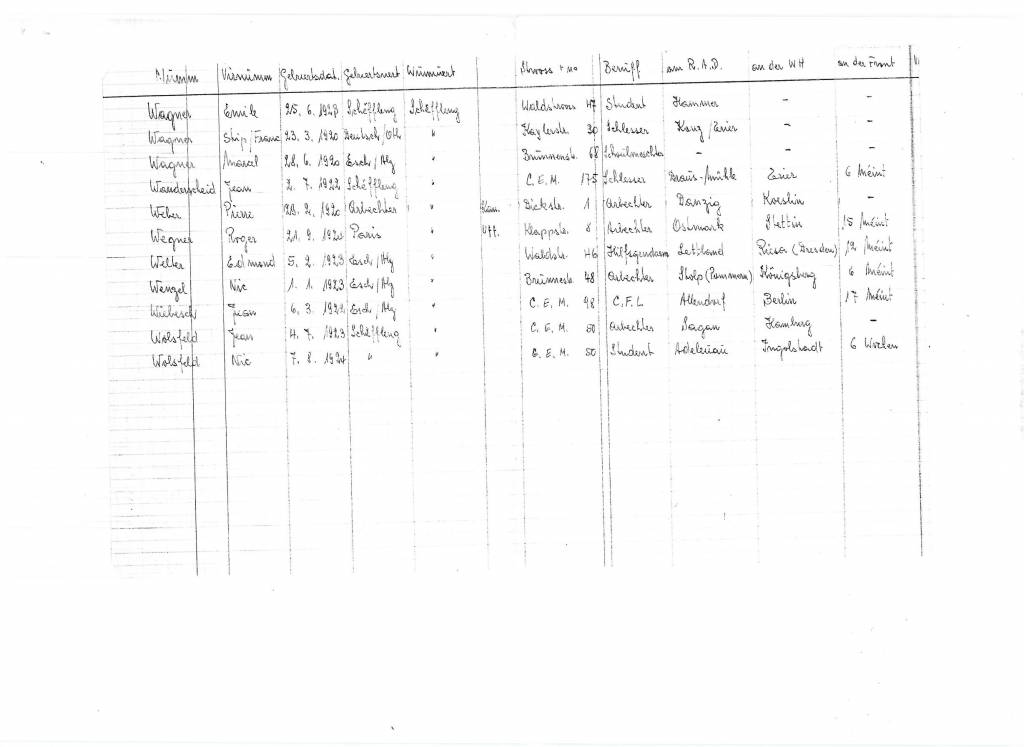 Numm Virnumm Geburtsdat. Geburtsuert Wunnuert Stross + no Beruff am R.A.D. an der WH an der Front
Wagner Emile 25. 6. 1927 Schëffleng Schëffleng Waldstross 47 Student Hammer - -
Wagner Ship/Franc 23. 3. 1920 Deutsch/Oth " Kaylerstr. 30 Schlesser Konz/Trier - -
Wagner Marcel 28. 6. 1920 Esch/Alz " Brunnenstr. 68 Schoulmeschter - - -
Wanderscheid Jean 2. 7. 1922 Schëffleng " C.E.M. 175 Schlesser Kraus-/Mühle Trier 6 Méint
Weber Pierre 28. 2. 1920 " Dickstr. 1 Arbechter Danzig Koeslin -
Wegner Roger 21. 9. 1920 Paris " Klappstr. 8 Arbechter Ostmark Stettin 15 Méint
Welter Edmond 5. 2. 1923 Esch/Alz " Waldstr. 46 Hilfsgendarm Lettland Riesa (Dresden) 12 Méint
Wengel Nic 1. 1. 1923 Esch/Alz " Brunnestr. 48 Arbechter Stolp (Pommern) Königsberg 6 Méint
Wiebesch Jean 6. 3. 1922 Esch/Alz " C.E.M. 98 C.F.L Allendorf Berlin 17 Méint
Wolsfeld Jean 4. 7. 1923 Schëffleng " C.E.M. 50 Arbechter Sagan Hamburg -
Wolsfeld Nic 7. 8. 1924 " " C.E.M. 50 Student Adelnau Ingolstadt 6 Wochen